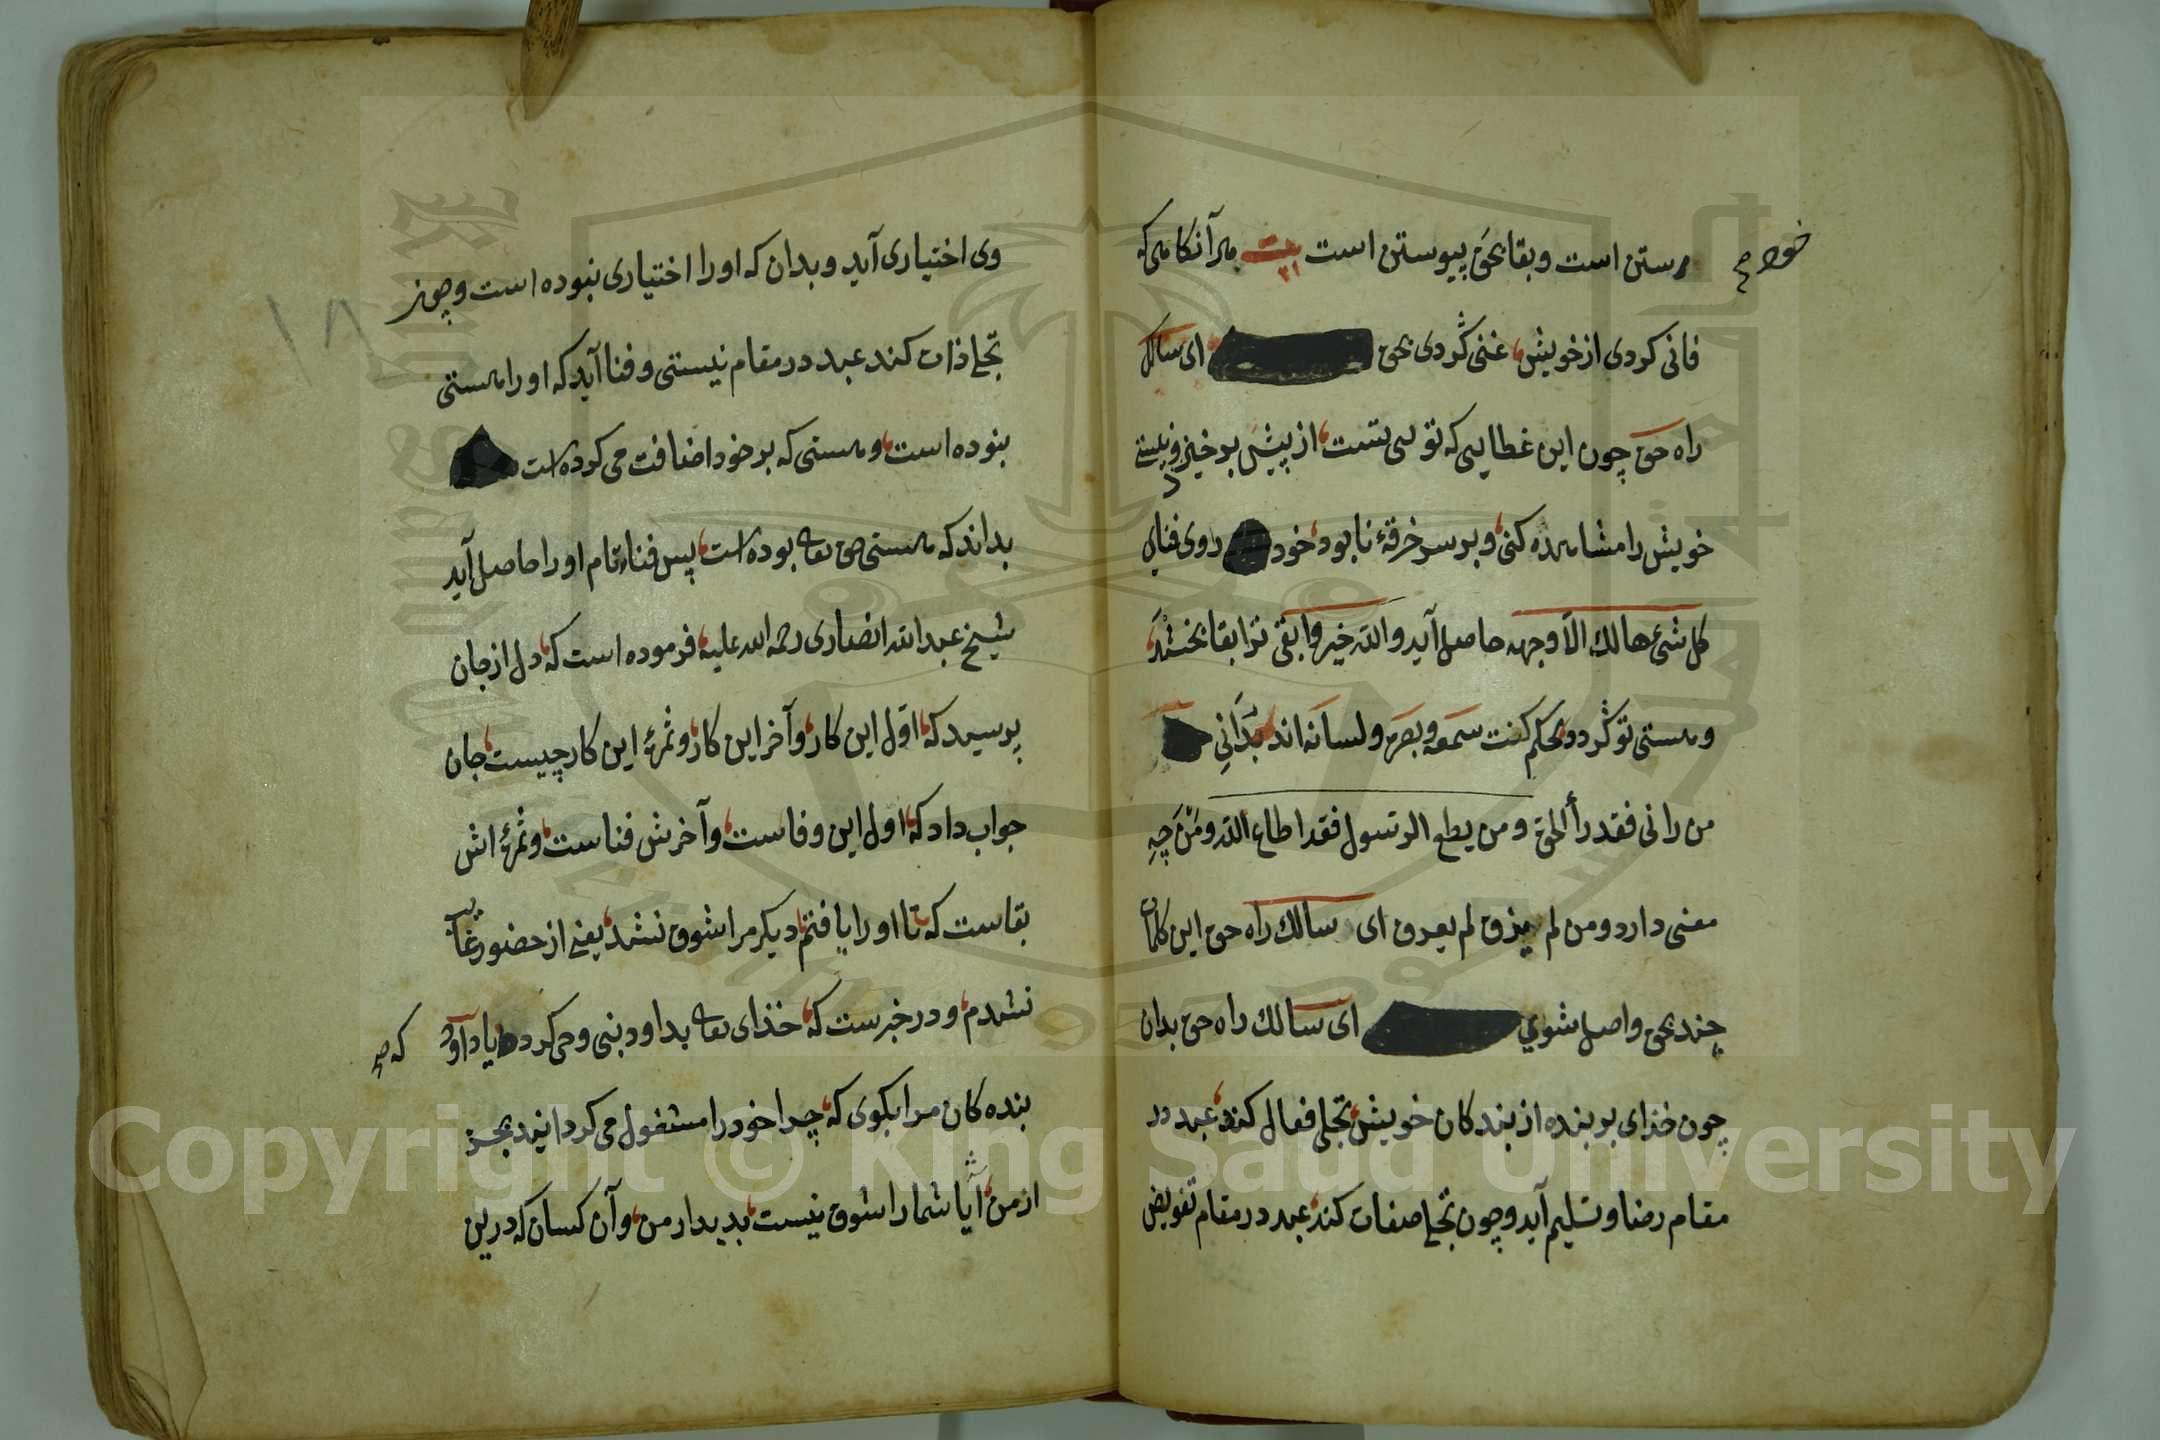 خود صح
رستن است و بقا بحق پیوستن است بیت هر آنکاهی که
فانی کردی از خویش غنی گردی بحق ای سالک
راه حق چون این غطایی که تویی تست از پیش برخیزد
خویش را مشاهده کنی و بر سر خرقهٔ نابود خود روی فنای
کل شیء هالك الا وجهه حاصل آید و الله خیر و ابقی ترا بقا بخشد
و هستی تو گردد بحکم کنت سمعه و بصره و لسانه اند بدانی
من رانی فقد رأ الحق و من یطع الرسول فقد اطاع الله و من چه
معنی دارد و من لم یذق لم یعرف ای سالك راه حق این کلمات
چند بحق واصل شوي ای سالك راه حق بدان
چون خذای بر بنده از بندکان خویش تجلی فعال کند عبد در
مقام رضا و تسلیم آید و چون تجلی صفات کند عبد در مقام تفویض
وی اختیاری آید و بدان که او را اختیاری نبوده است و چون
تجلی ذات کند عبد در مقام نیستی و فنا آید که او را هستی
نبوده است و هستی که بر خود اضافت می کرده است
بداند که هستی حق تعالی بوده است پس فناء تام او را حاصل آید
شیخ عبد الله انصاری رحمه الله علیه فرموده است که دل از جان
پرسید که اول این کار و آخر این کار و ثمرهٔ این کار چیست جان
جواب داد که اول این وفاست و آخرش فناست و ثمرهٔ اش
بقاست که تا او را یافتم دیکر مرا شوق نشد یعنی از حضور غایب
نشدم و در خبرست که خذای تعالی بداود نبی وحی کرد یا داود
که صح
بنده کان مرا بکوی که چرا خود را مشغول می کردانید بجز
از من آیا شما را شوق نیست بدیدار من و آن کسان که درین
Copyright © King Saud University